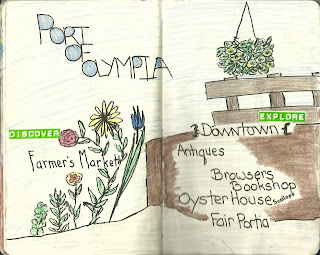 PORT
OF
OLYMPIA
DISCOVER
Farmer's Market
EXPLORE
Downtown
Antiques
Browsers
Bookshop
Oyster House
Fair Portia